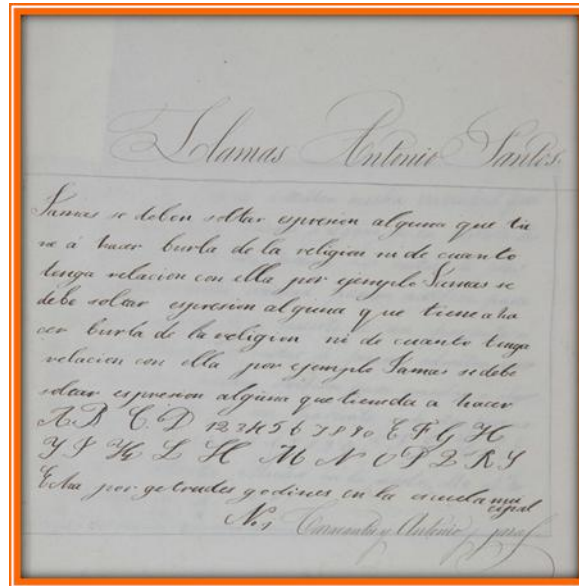 Llamas Antonio Santos
Jamas se deben soltar espresion alguna que tie
ne á hacer burla de la religion ni de cuanto
tenga relacion con ella por ejemplo Jamas se
debe soltar espresion alguna que tiene a ha
cer burla de la religion ni de cuanto tenga
relacion con ella por ejemplo Jamas se debe
soltar espresion alguna que tienda a hacer
A B C D 1 2 3 4 5 6 7 8 9 0 E F G H
Y J K L H M N O P Q R S
Echa por getrudes godines en la escuela municipal
No. 1 Antonio